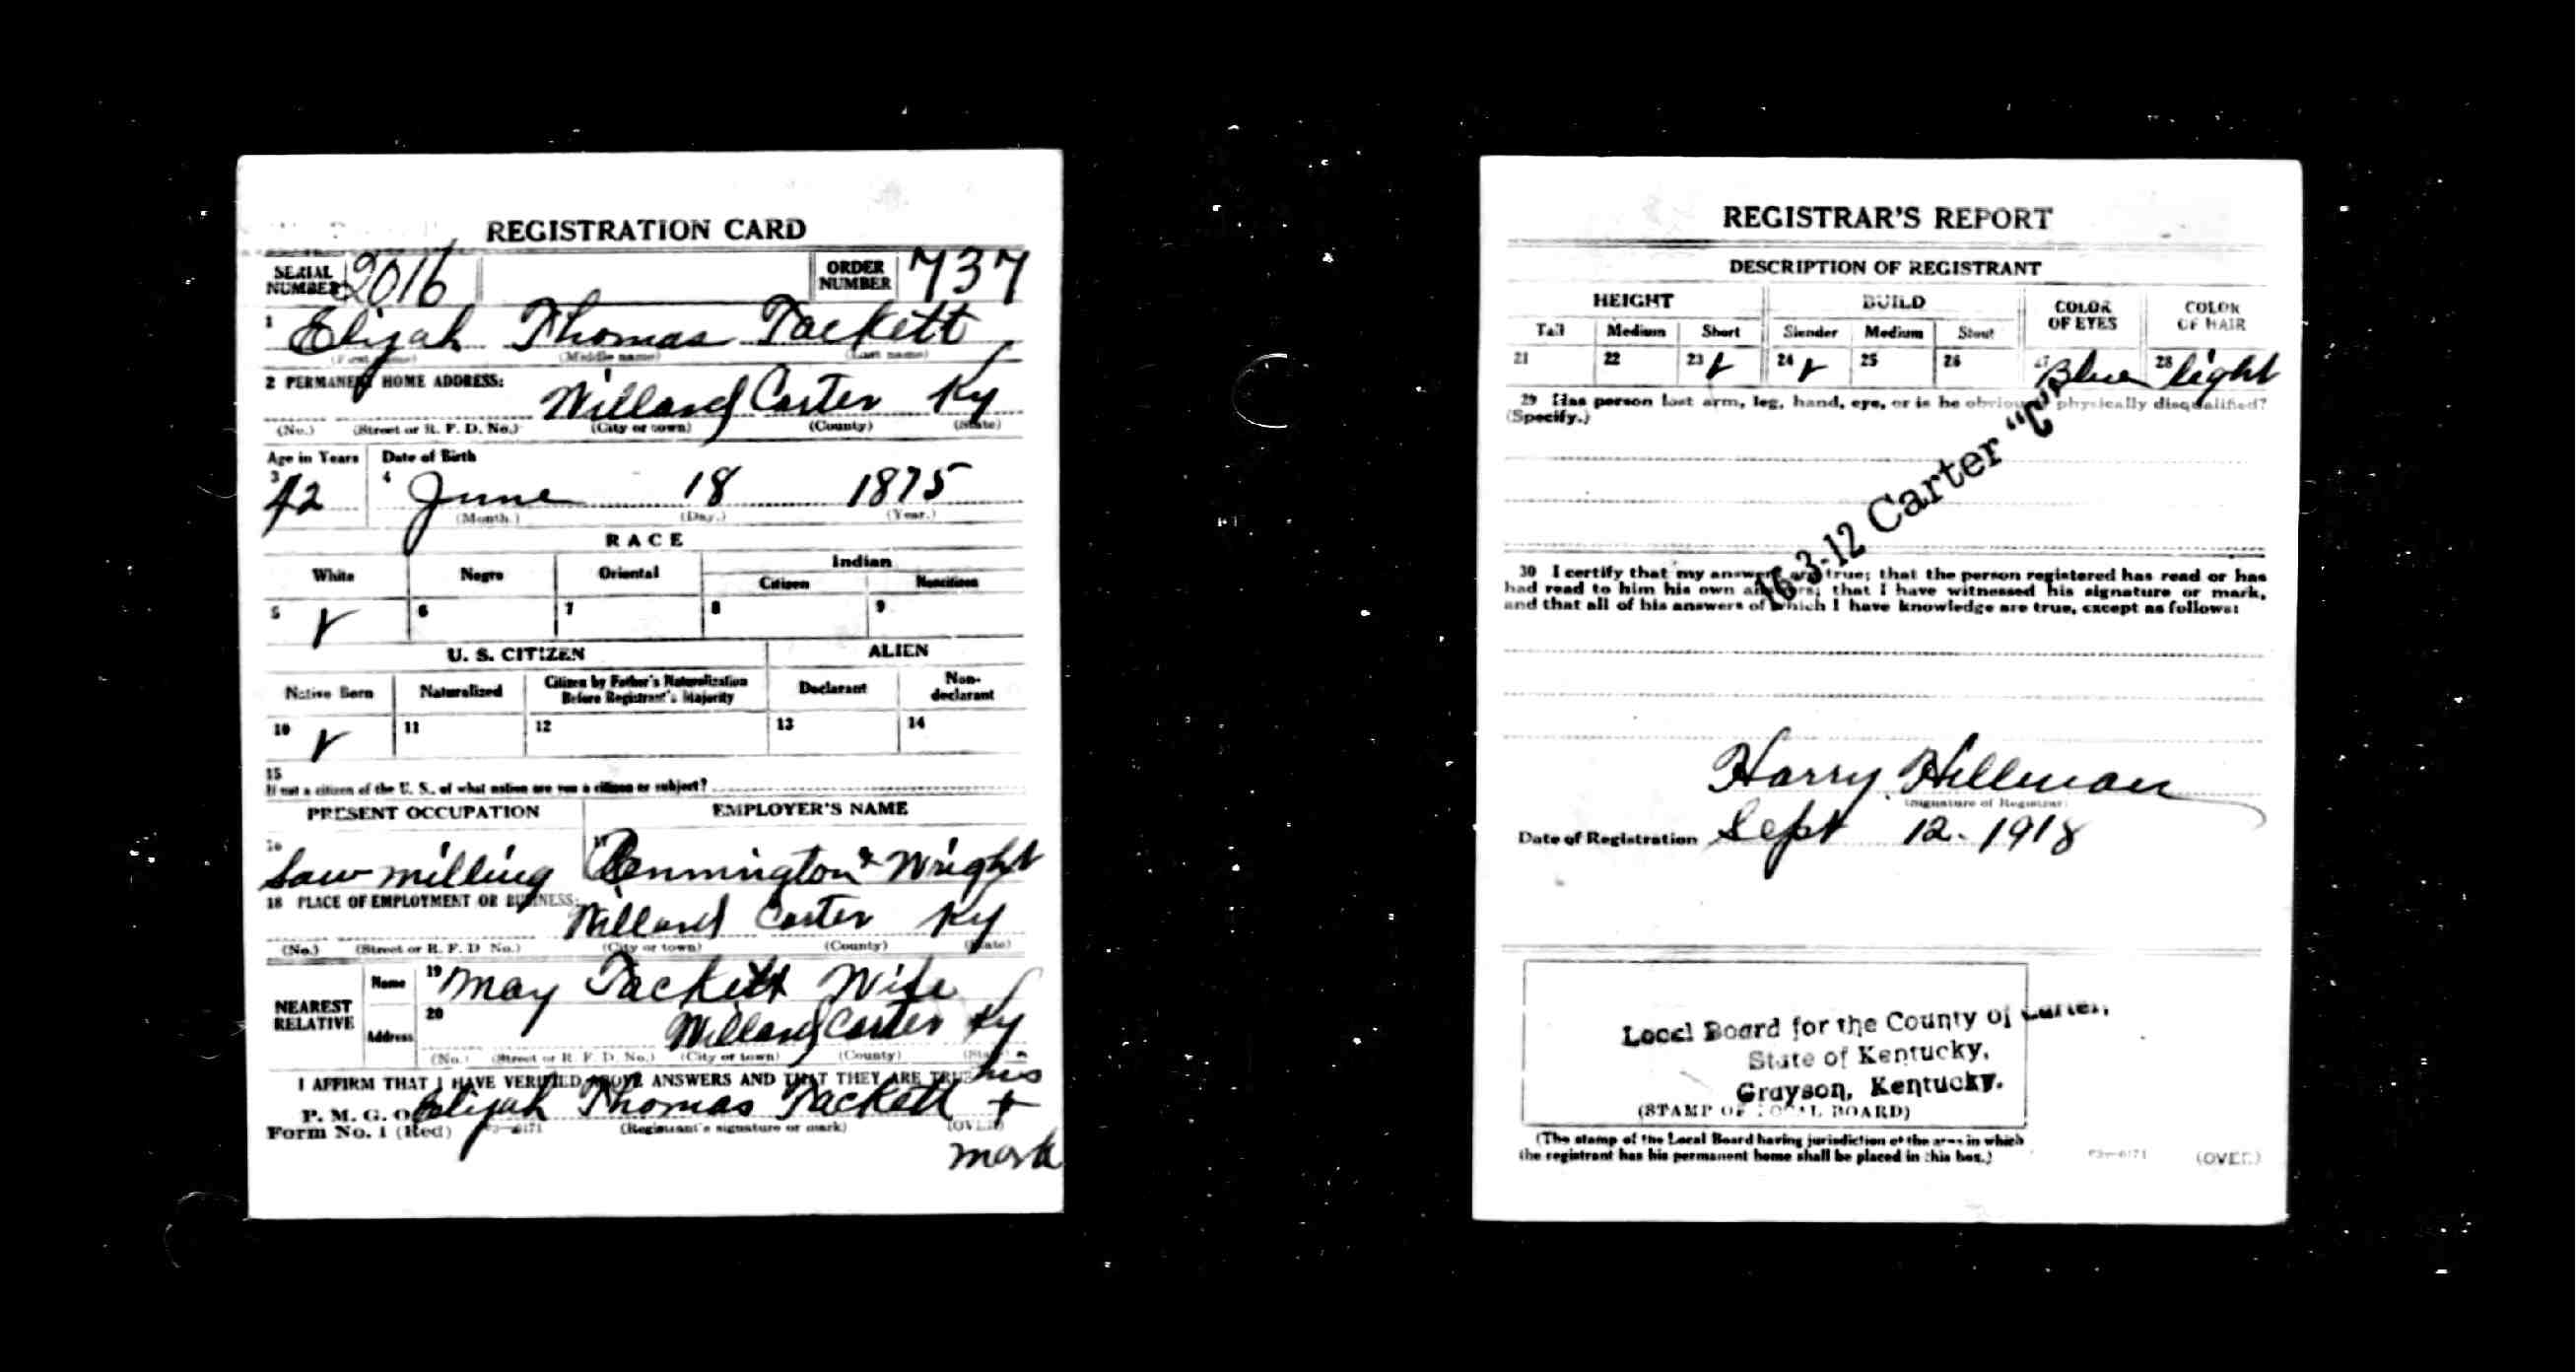 REGISTRATION CARD
SERIAL NUMBER 2016 ORDER NUMBER 737
1 Elijah Thomas Tackett
(First name) (Middle name) (Last name)
2 PERMANENT HOME ADDRESS:
Willard Carter Ky
(No.) (Street or R. F. D. No.) (City or town) (County) (State)
Age in Years Date of Birth
3 42 4 June 18 1875
(Month.) (Day.) (Year.)
RACE
White Negro Oriental Indian
Citizen Noncitizen
5 6 7 8 9
U. S. CITIZEN ALIEN
Native Born Naturalized Citizen by Father's Naturalization Before Registrant's Majority Declarant Non-declarant
10 11 12 13 14
15
If not a citizen of the U. S., of what nation are you a citizen or subject?
PRESENT OCCUPATION EMPLOYER'S NAME
16 Saw milling 17 Pennington & Wright
18 PLACE OF EMPLOYMENT OR BUSINESS:
Willard Carter Ky
(No.) (Street or R. F. D. No.) (City or town) (County) (State)
NEAREST RELATIVE
Name 19 May Tackett Wife
Address 20 Willard Carter Ky
(No.) (Street or R. F. D. No.) (City or town) (County) (State)
I AFFIRM THAT I HAVE VERIFIED ABOVE ANSWERS AND THAT THEY ARE TRUE his
P. M. G. O. Elijah Thomas Tackett +
Form No. 1 (Red) 03—6171 (Registrant's signature or mark) (OVER)
mark
REGISTRAR'S REPORT
DESCRIPTION OF REGISTRANT
HEIGHT BUILD COLOR OF EYES COLOR OF HAIR
Tall Medium Short Slender Medium Stout
21 22 23 24 25 26 27 Blue 28 light
29 Has person lost arm, leg, hand, eye, or is he obviously physically disqualified?
(Specify.)
16-3-12 Carter "C"
30 I certify that my answers are true; that the person registered has read or has
had read to him his own answers; that I have witnessed his signature or mark,
and that all of his answers of which I have knowledge are true, except as follows:
Harry Hillman
(Signature of Registrar)
Date of Registration Sept 12. 1918
Local Board for the County of Carter,
State of Kentucky,
Grayson, Kentucky.
(STAMP OF LOCAL BOARD)
(The stamp of the Local Board having jurisdiction of the area in which
the registrant has his permanent home shall be placed in this box.) 03—6171 (OVER)